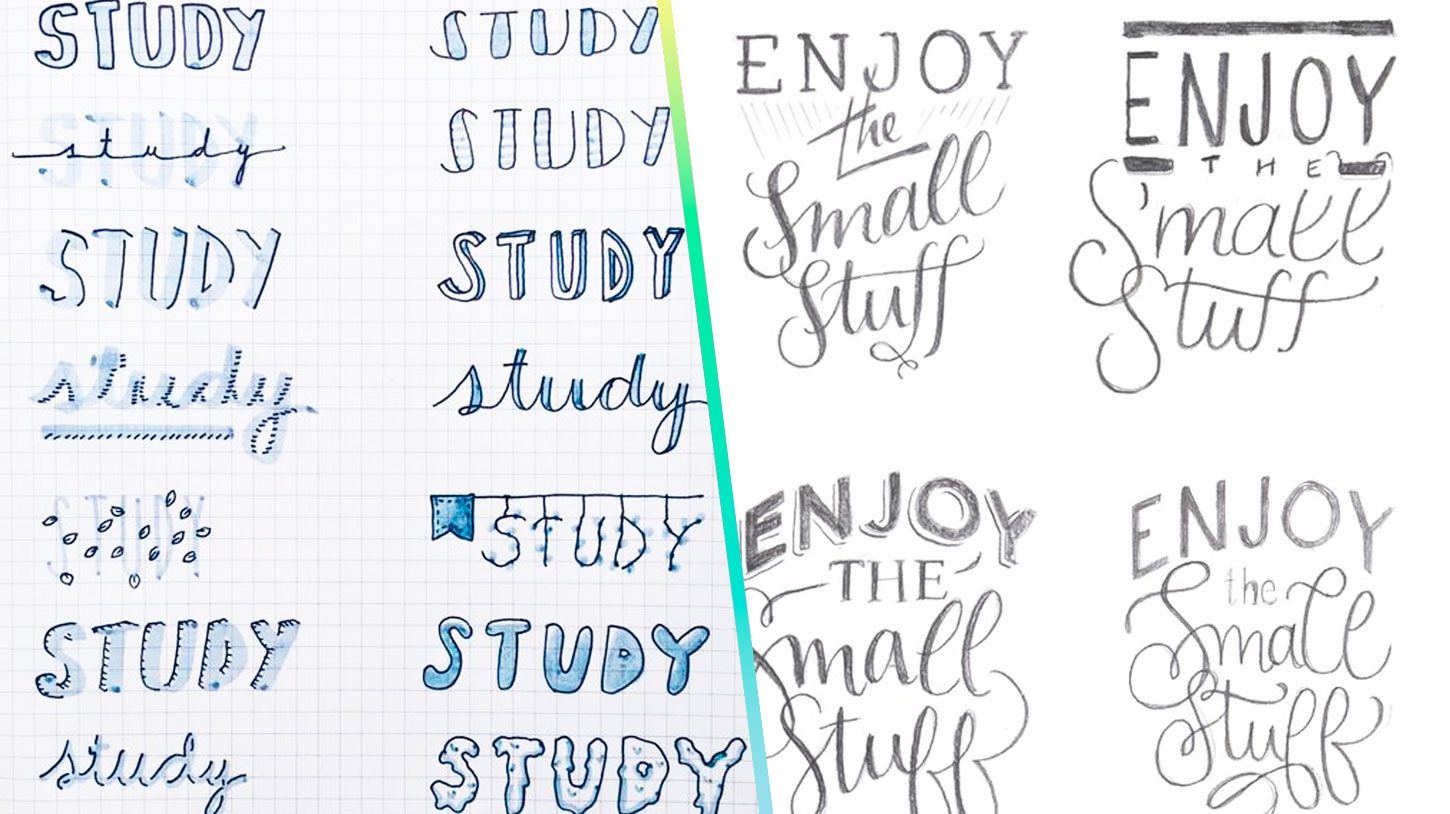 STUDY
STUDY
study
STUDY
STUDY
STUDY
study
study
STUDY
STUDY
STUDY
STUDY
study
STUDY
ENJOY
the
Small
Stuff
ENJOY
THE
Small
Stuff
ENJOY
THE
Small
Stuff
ENJOY
the
Small
Stuff